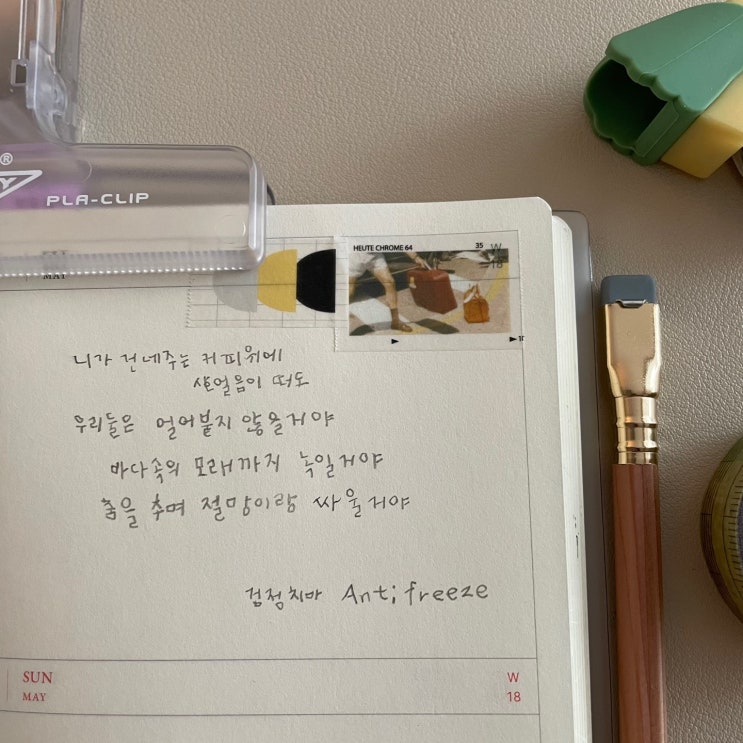 PLA-CLIP
MAY
HEUTE CHROME 64 35
W
18
니가 건네주는 커피위에
살얼음이 떠도
우리들은 얼어붙지 않을거야
바다속의 모래까지 녹일거야
춤을 추며 절망이랑 싸울거야
검정치마 Antifreeze
SUN W
MAY 18